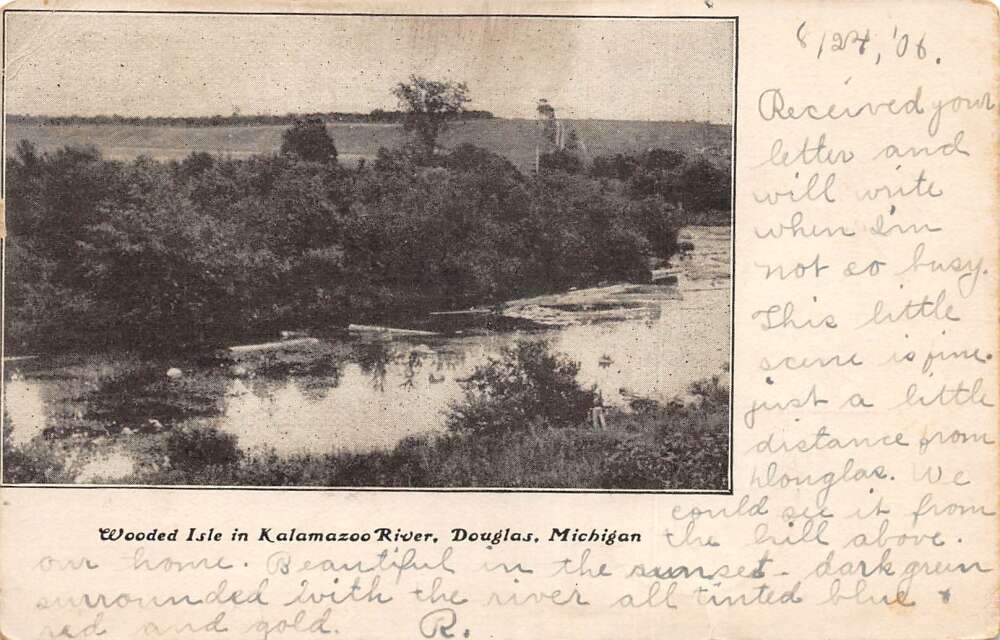 8/24, '06.
Received your
letter and
will write
when I'm
not so busy.
This little
scene is fine.
just a little
distance from
Douglas. We
could see it from
the hill above.
Wooded Isle in Kalamazoo River, Douglas, Michigan
our home. Beautiful in the sunset - dark green
surrounded with the river all tinted blue &
red and gold. R.